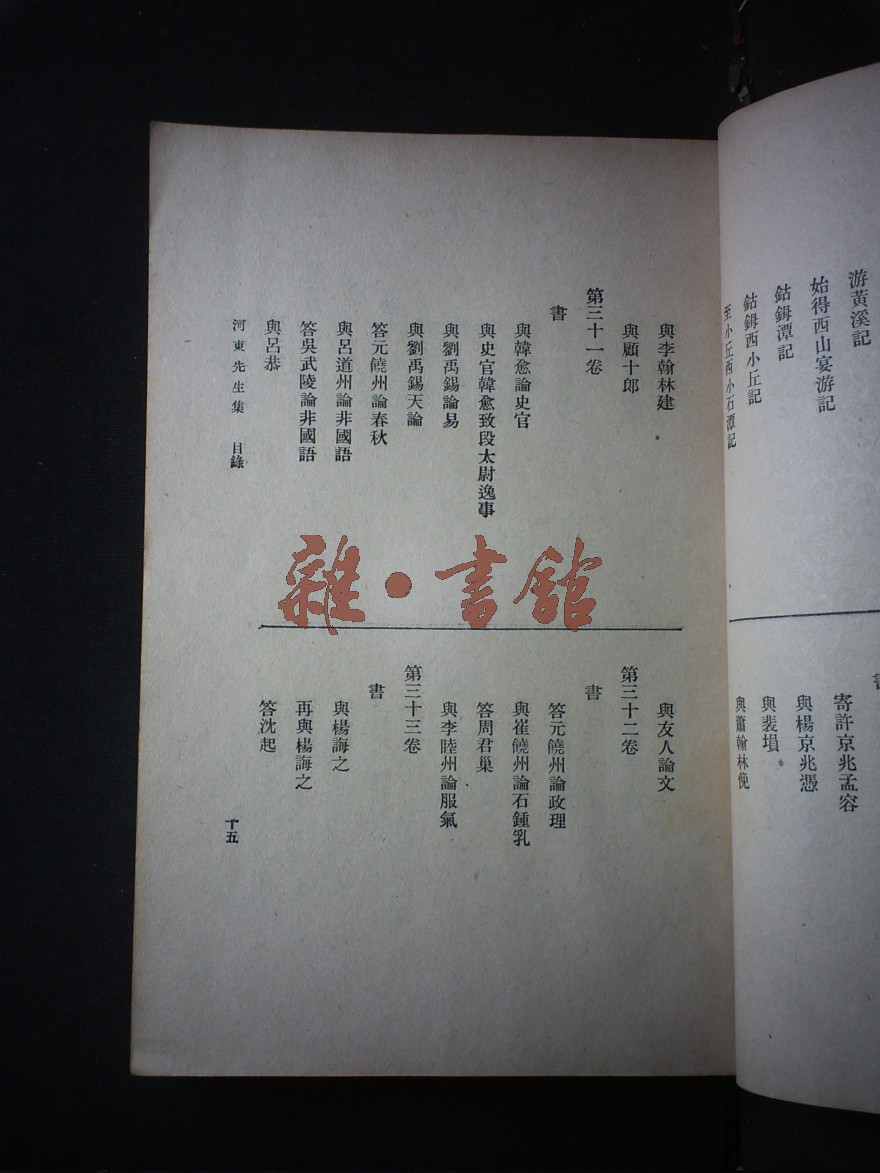 游黃溪記
始得西山宴游記
鈷鉧潭記
鈷鉧西小丘記
至小丘西小石潭記
書
寄許京兆孟容
與楊京兆憑
與裴塤
與蕭翰林俛
與李翰林建
與顧十郎
第三十一卷
書
與韓愈論史官
與史官韓愈致段太尉逸事
與劉禹錫論易
與劉禹錫天論
答元饒州論春秋
與呂道州論非國語
答吳武陵論非國語
與呂恭
與友人論文
第三十二卷
書
答元饒州論政理
與崔饒州論石鍾乳
答周君巢
與李睦州論服氣
第三十三卷
書
與楊誨之
再與楊誨之
答沈起
河東先生集 目錄
十五
雜·書館